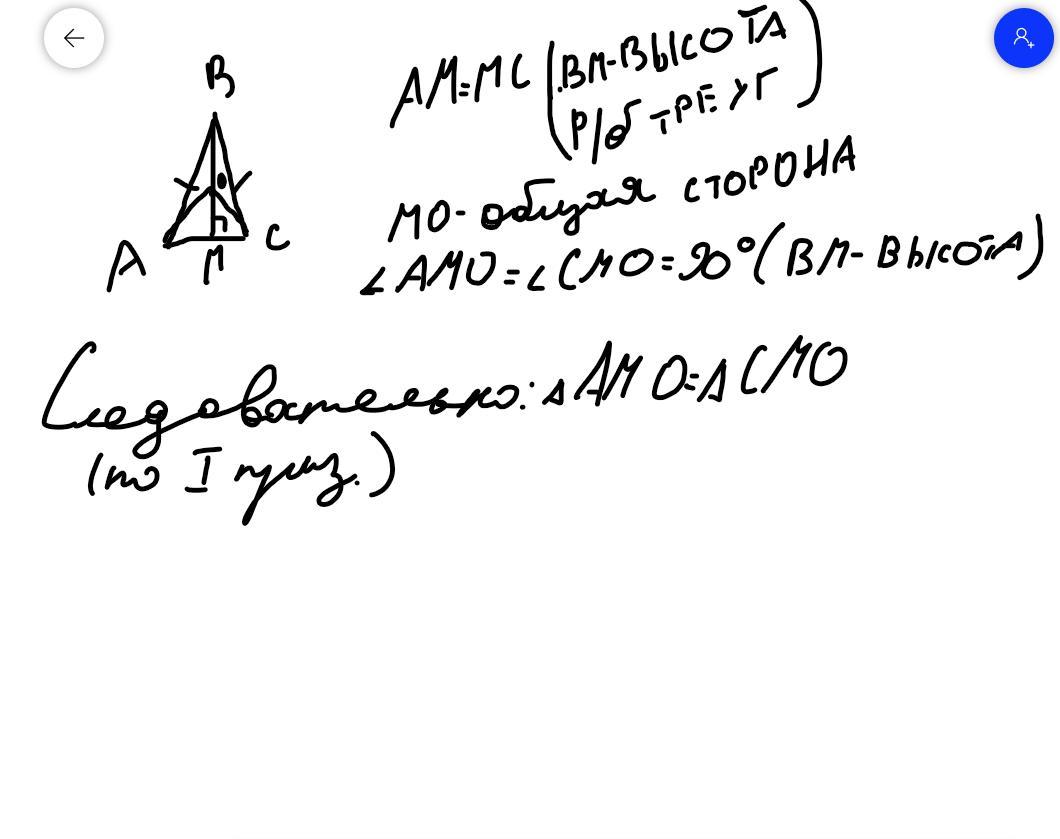 B
AM=MC (BM-ВЫСОТА
Р/б ТРЕУГ)
MO- общая СТОРОНА
A M C
∠AMO=∠CMO=90°(BM-ВЫСОТА)
Следовательно: ΔAMO=ΔCMO
(по I приз.)